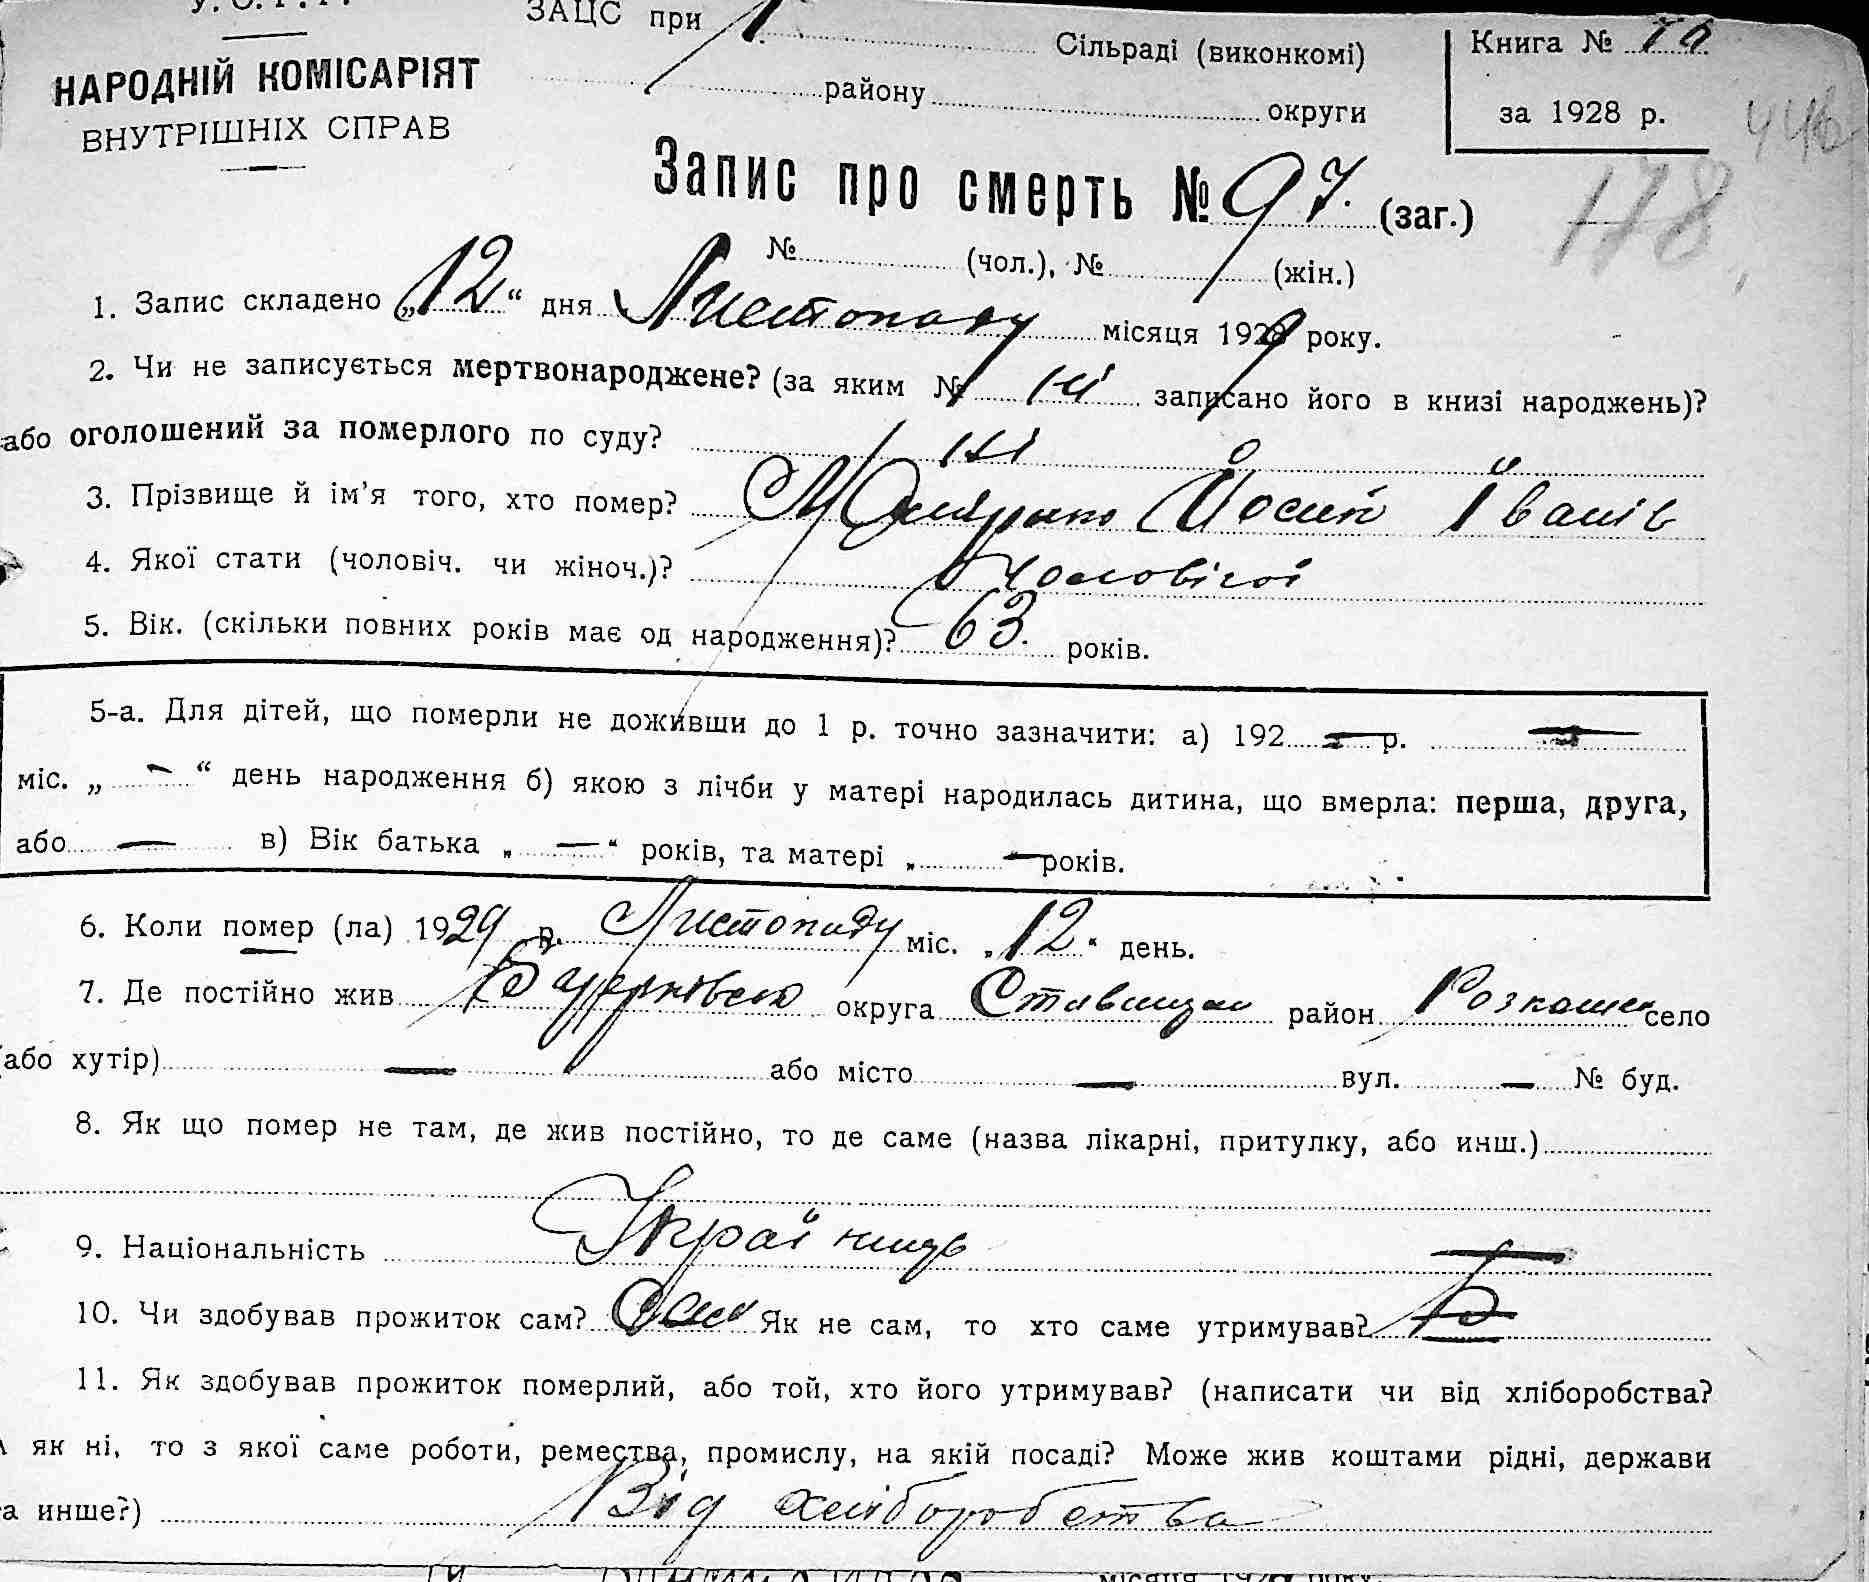 У. С. Р. Р.
НАРОДНІЙ КОМІСАРІЯТ
ВНУТРІШНІХ СПРАВ
ЗАЦС при Сільраді (виконкомі)
району округи
Книга №
за 1928 р.
446
178
Запис про смерть № 97. (заг.)
№ (чол.), № (жін.)
1. Запис складено „12“ дня Листопаду місяця 1929 року.
2. Чи не записується мертвонароджене? (за яким № ні записано його в книзі народжень)?
або оголошений за померлого по суду? ні
3. Прізвище й ім’я того, хто помер? Йосип Іванів
4. Якої стати (чоловіч. чи жіноч.)? Чоловічої
5. Вік. (скільки повних років має од народження)? 63. років.
5-а. Для дітей, що померли не доживши до 1 р. точно зазначити: а) 192 — р. —
міс. „ — “ день народження б) якою з лічби у матері народилась дитина, що вмерла: перша, друга,
або — в) Вік батька „ — “ років, та матері „ — років.
6. Коли помер (ла) 1929 р. Листопаду міс. „12“ день.
7. Де постійно жив Б Церківсько округа Ставищан район Розкошна село
(або хутір) — або місто — вул. — № буд.
8. Як що помер не там, де жив постійно, то де саме (назва лікарні, притулку, або инш.)
9. Національність Українець —
10. Чи здобував прожиток сам? Сам Як не сам, то хто саме утримував?
11. Як здобував прожиток померлий, або той, хто його утримував? (написати чи від хліборобства?
А як ні, то з якої саме роботи, ремества, промислу, на якій посаді? Може жив коштами рідні, держави
та инше?) Від хліборобства